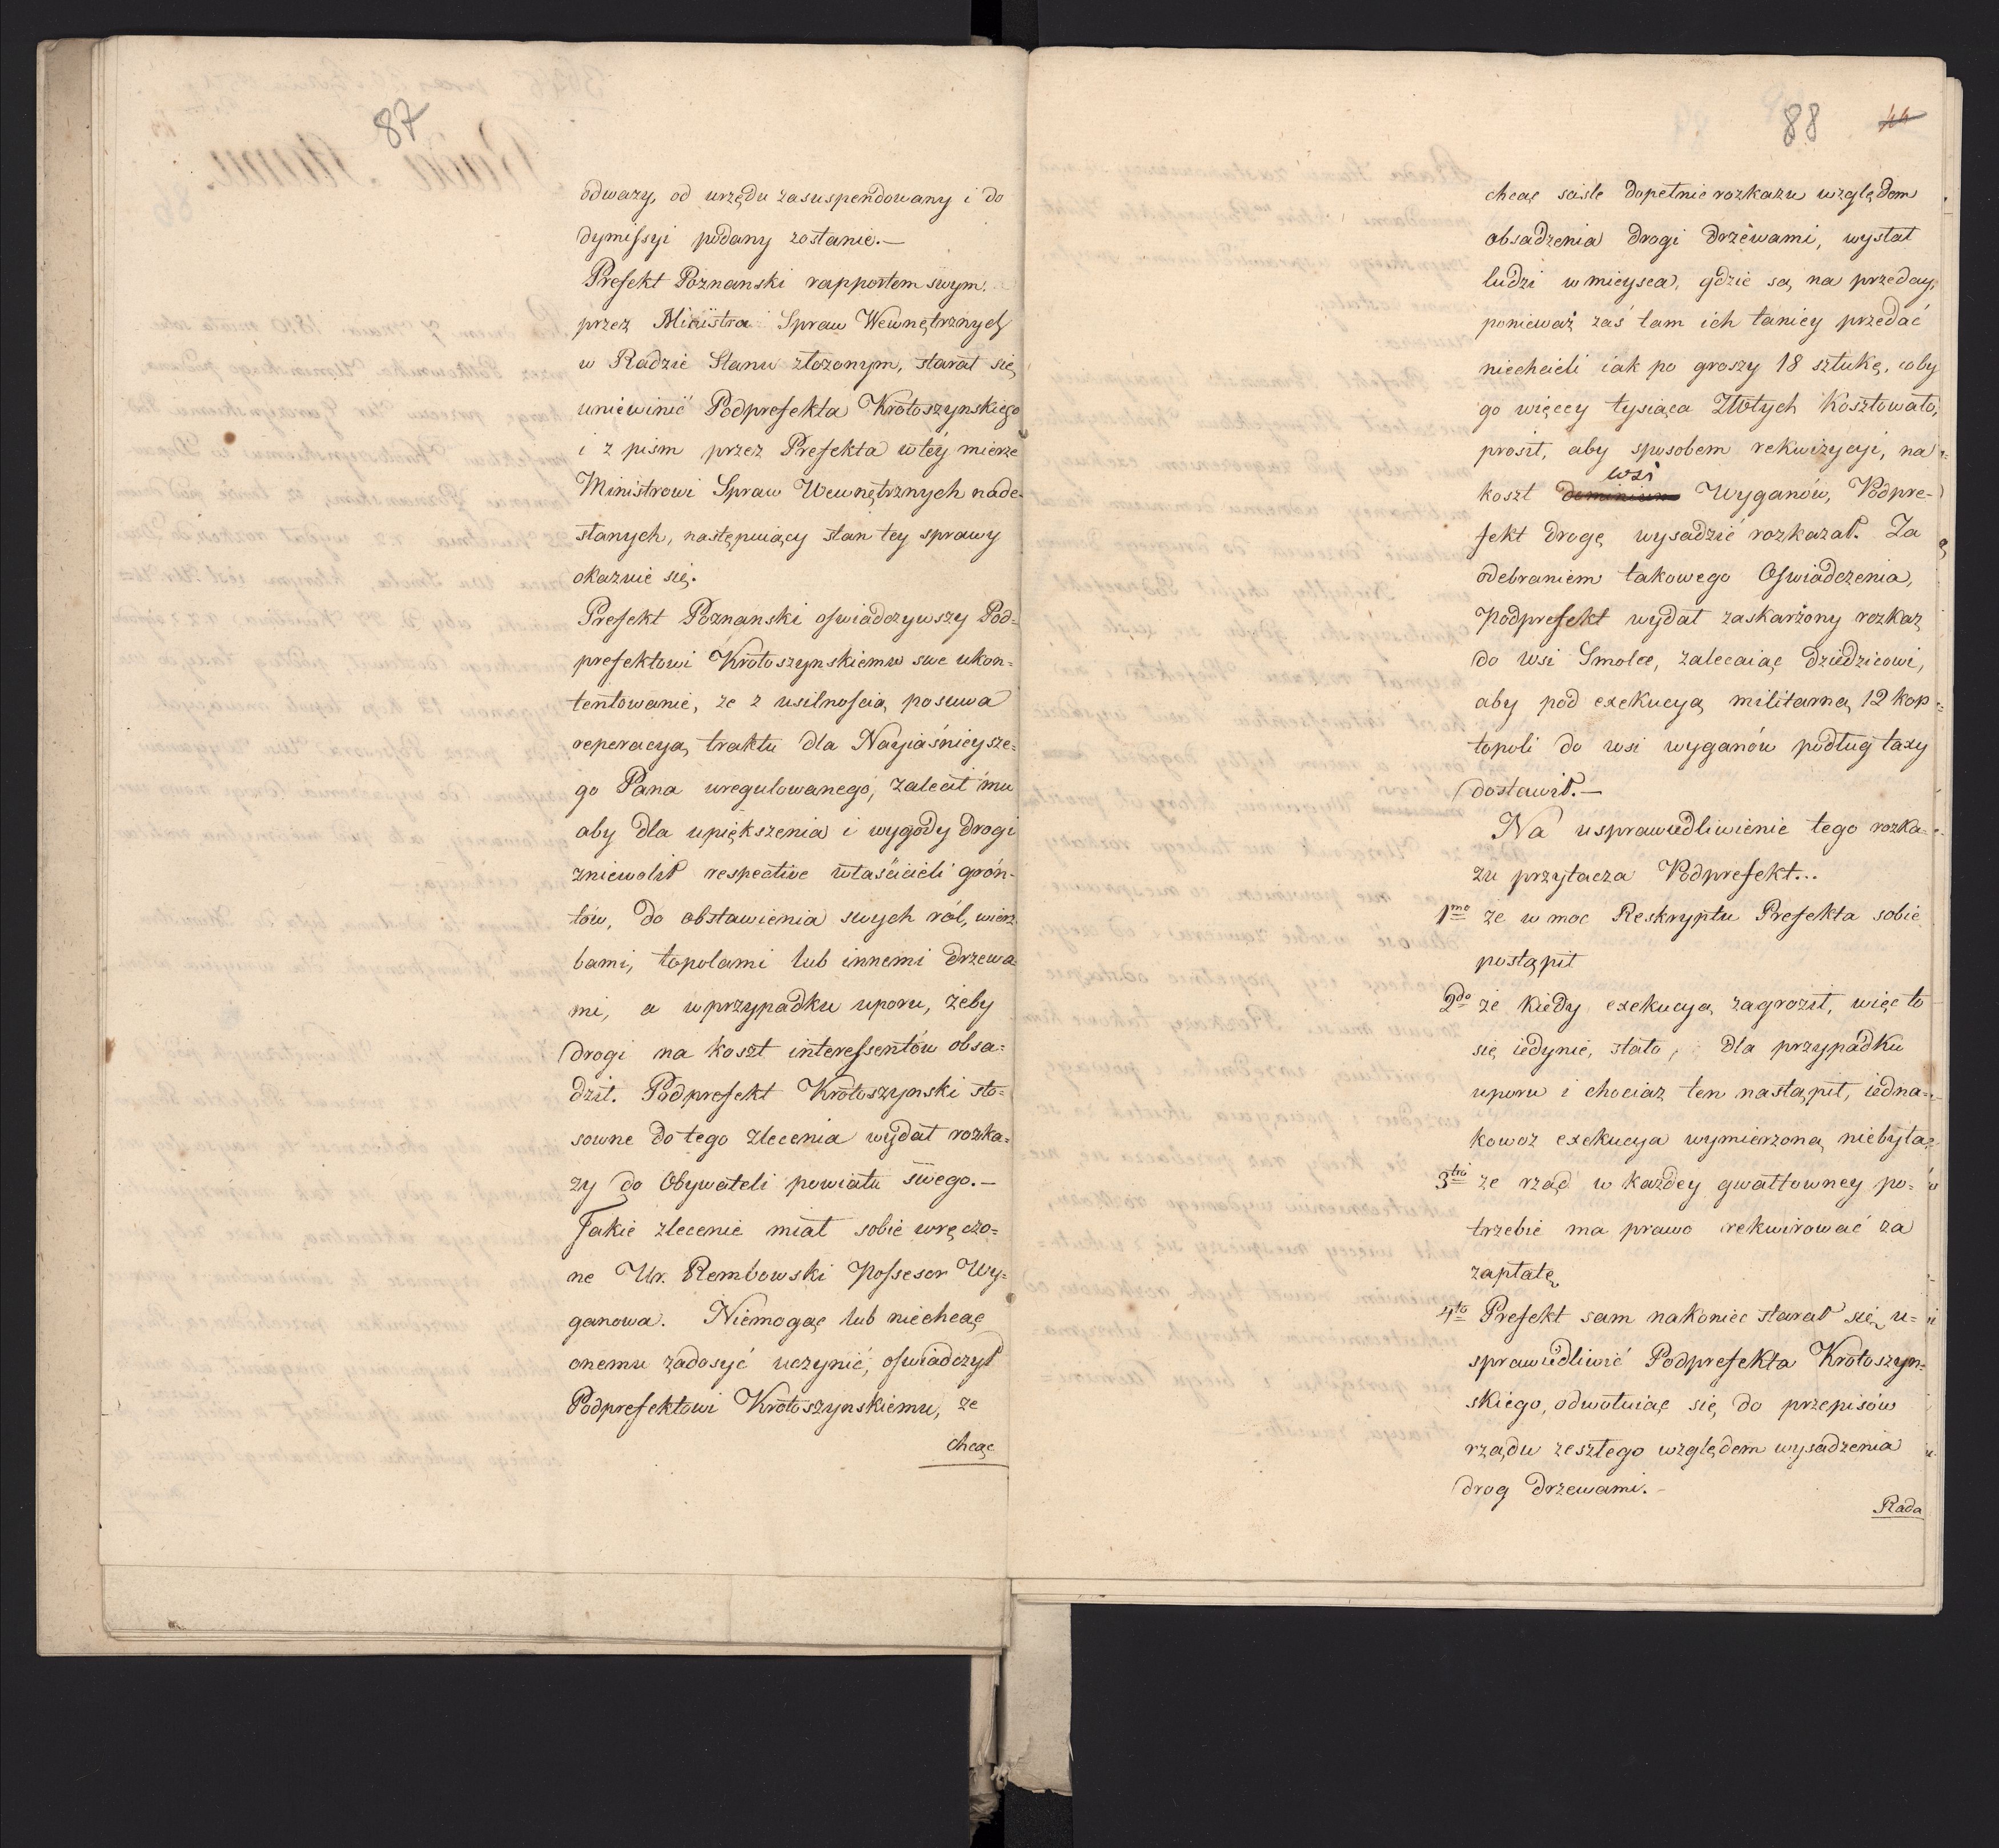 87
odwazy, od urzędu zasuspendowany i do
dymissyi podany zostanie.—
Prefekt Poznanski rapportem swym
przez Ministra Spraw Wewnętrznych
w Radzie Stanu złozonym, starał się
uniewinić Podprefekta Krotoszynskiego
i z pism przez Prefekta w tey mierze
Ministrowi Spraw Wewnętrznych nade-
słanych, następuiący stan tey sprawy
okazuie się.
Prefekt Poznanski oswiadczywszy Pod-
prefektowi Krotoszynskiemu swe ukon-
tentowanie, ze z usilnością posuwa
reperacyą traktu dla Nayiaśnieysze-
go Pana uregulowanego, zalecił mu
aby dla upiększenia i wygody drogi
zniewolił respective właścicieli grón-
tów, do obstawienia swych ról, wierz
bami, topolami lub innemi drzewa
mi, a w przypadku uporu, żeby
drogi na koszt interessentów obsa-
dził. Podprefekt Krotoszynski sto-
sowne do tego zlecenia wydał rozka-
zy do Obywateli powiatu swego.—
Takie zlecenie miał sobie wręczo-
ne Ur. Rembowski Possesor Wy-
ganowa. Niemogąc lub niechcąc
onemu zadosyć uczynić, oswiadczył
Podprefektowi Krotoszynskiemu, ze
chcąc
88 44
chcąc sciśle dopełnic rozkazu względem
obsadzenia drogi drzewami, wysłał
ludzi w mieysca, gdzie są na przeday,
ponieważ zaś tam ich taniey przedać
niechcieli iak po groszy 18 sztukę, coby
go więcey tysiąca Złotych kosztowało,
prosił, aby sposobem rekwizycyi, na
wsi
koszt dominium Wyganów, Podpre-
fekt drogę wysadzić rozkazał. Za
odebraniem takowego Oswiadczenia,
Podprefekt wydał zaskarżony rozkaz
do wsi Smolec, zalecaiąc dziedzicowi,
aby pod exekucyą militarną 12 kop
topoli do wsi wyganów podług taxy
dostawił.—
Na usprawiedliwienie tego rozka-
zu przytacza Podprefekt...
1mo ze w moc Reskryptu Prefekta sobie
postąpił
2do ze kiedy exekucyą zagroził, więc to
się iedynie, stało, dla przypadku
uporu i chociaz ten nastąpił, iedna-
kowoz exekucya wymierzoną niebyła
3tio ze rząd w każdey gwałtowney po-
trzebie ma prawo rekwirować za
zapłatę
4to Prefekt sam nakoniec starał się u-
sprawiedliwić Podprefekta Krotoszyn-
skiego, odwołuiąc się do przepisów
rządu zeszłego względem wysadzenia
drog drzewami.—
Rada